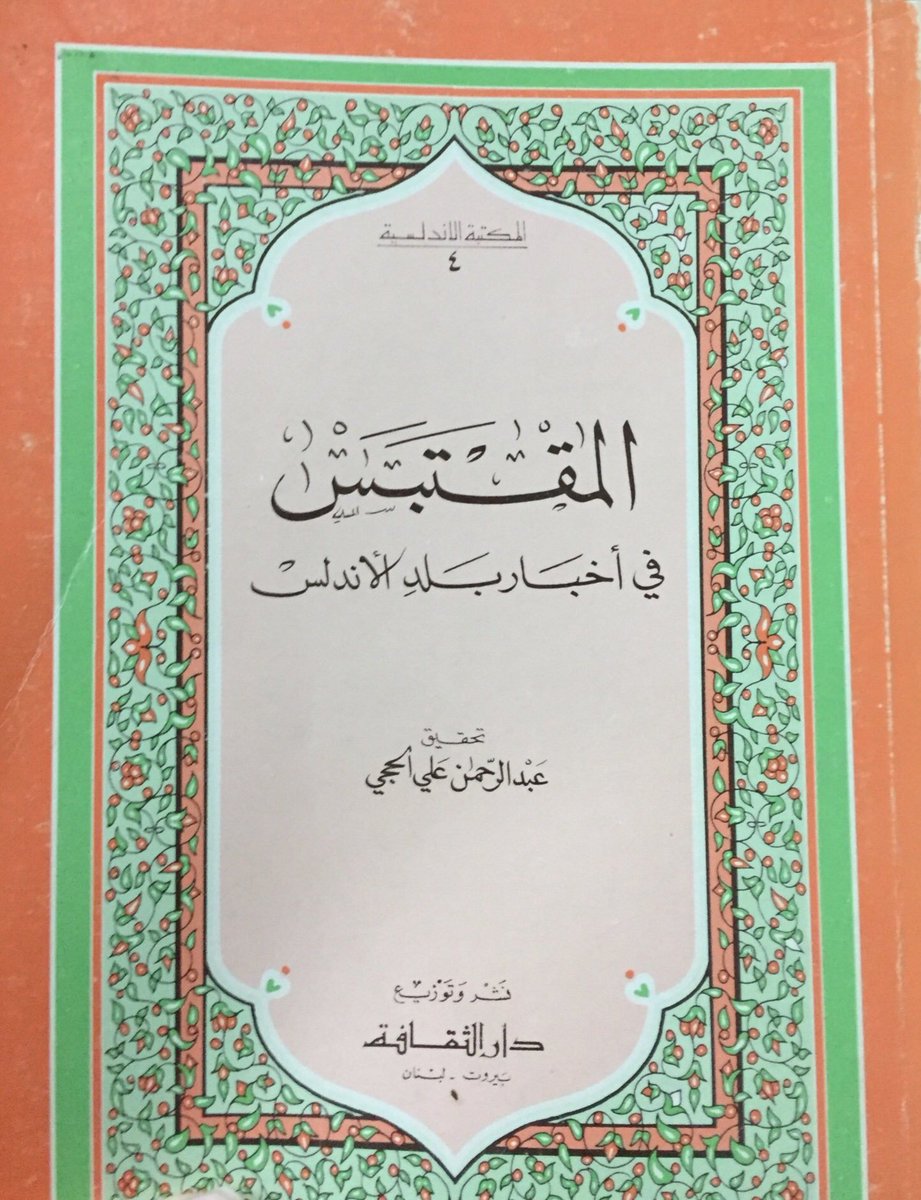 المكتبة الاندلسية
٤
المقتبس
في أخبار بلد الأندلس
تحقيق
عبد الرحمن علي الحجي
نشر وتوزيع
دار الثقافة
بيروت - لبنان